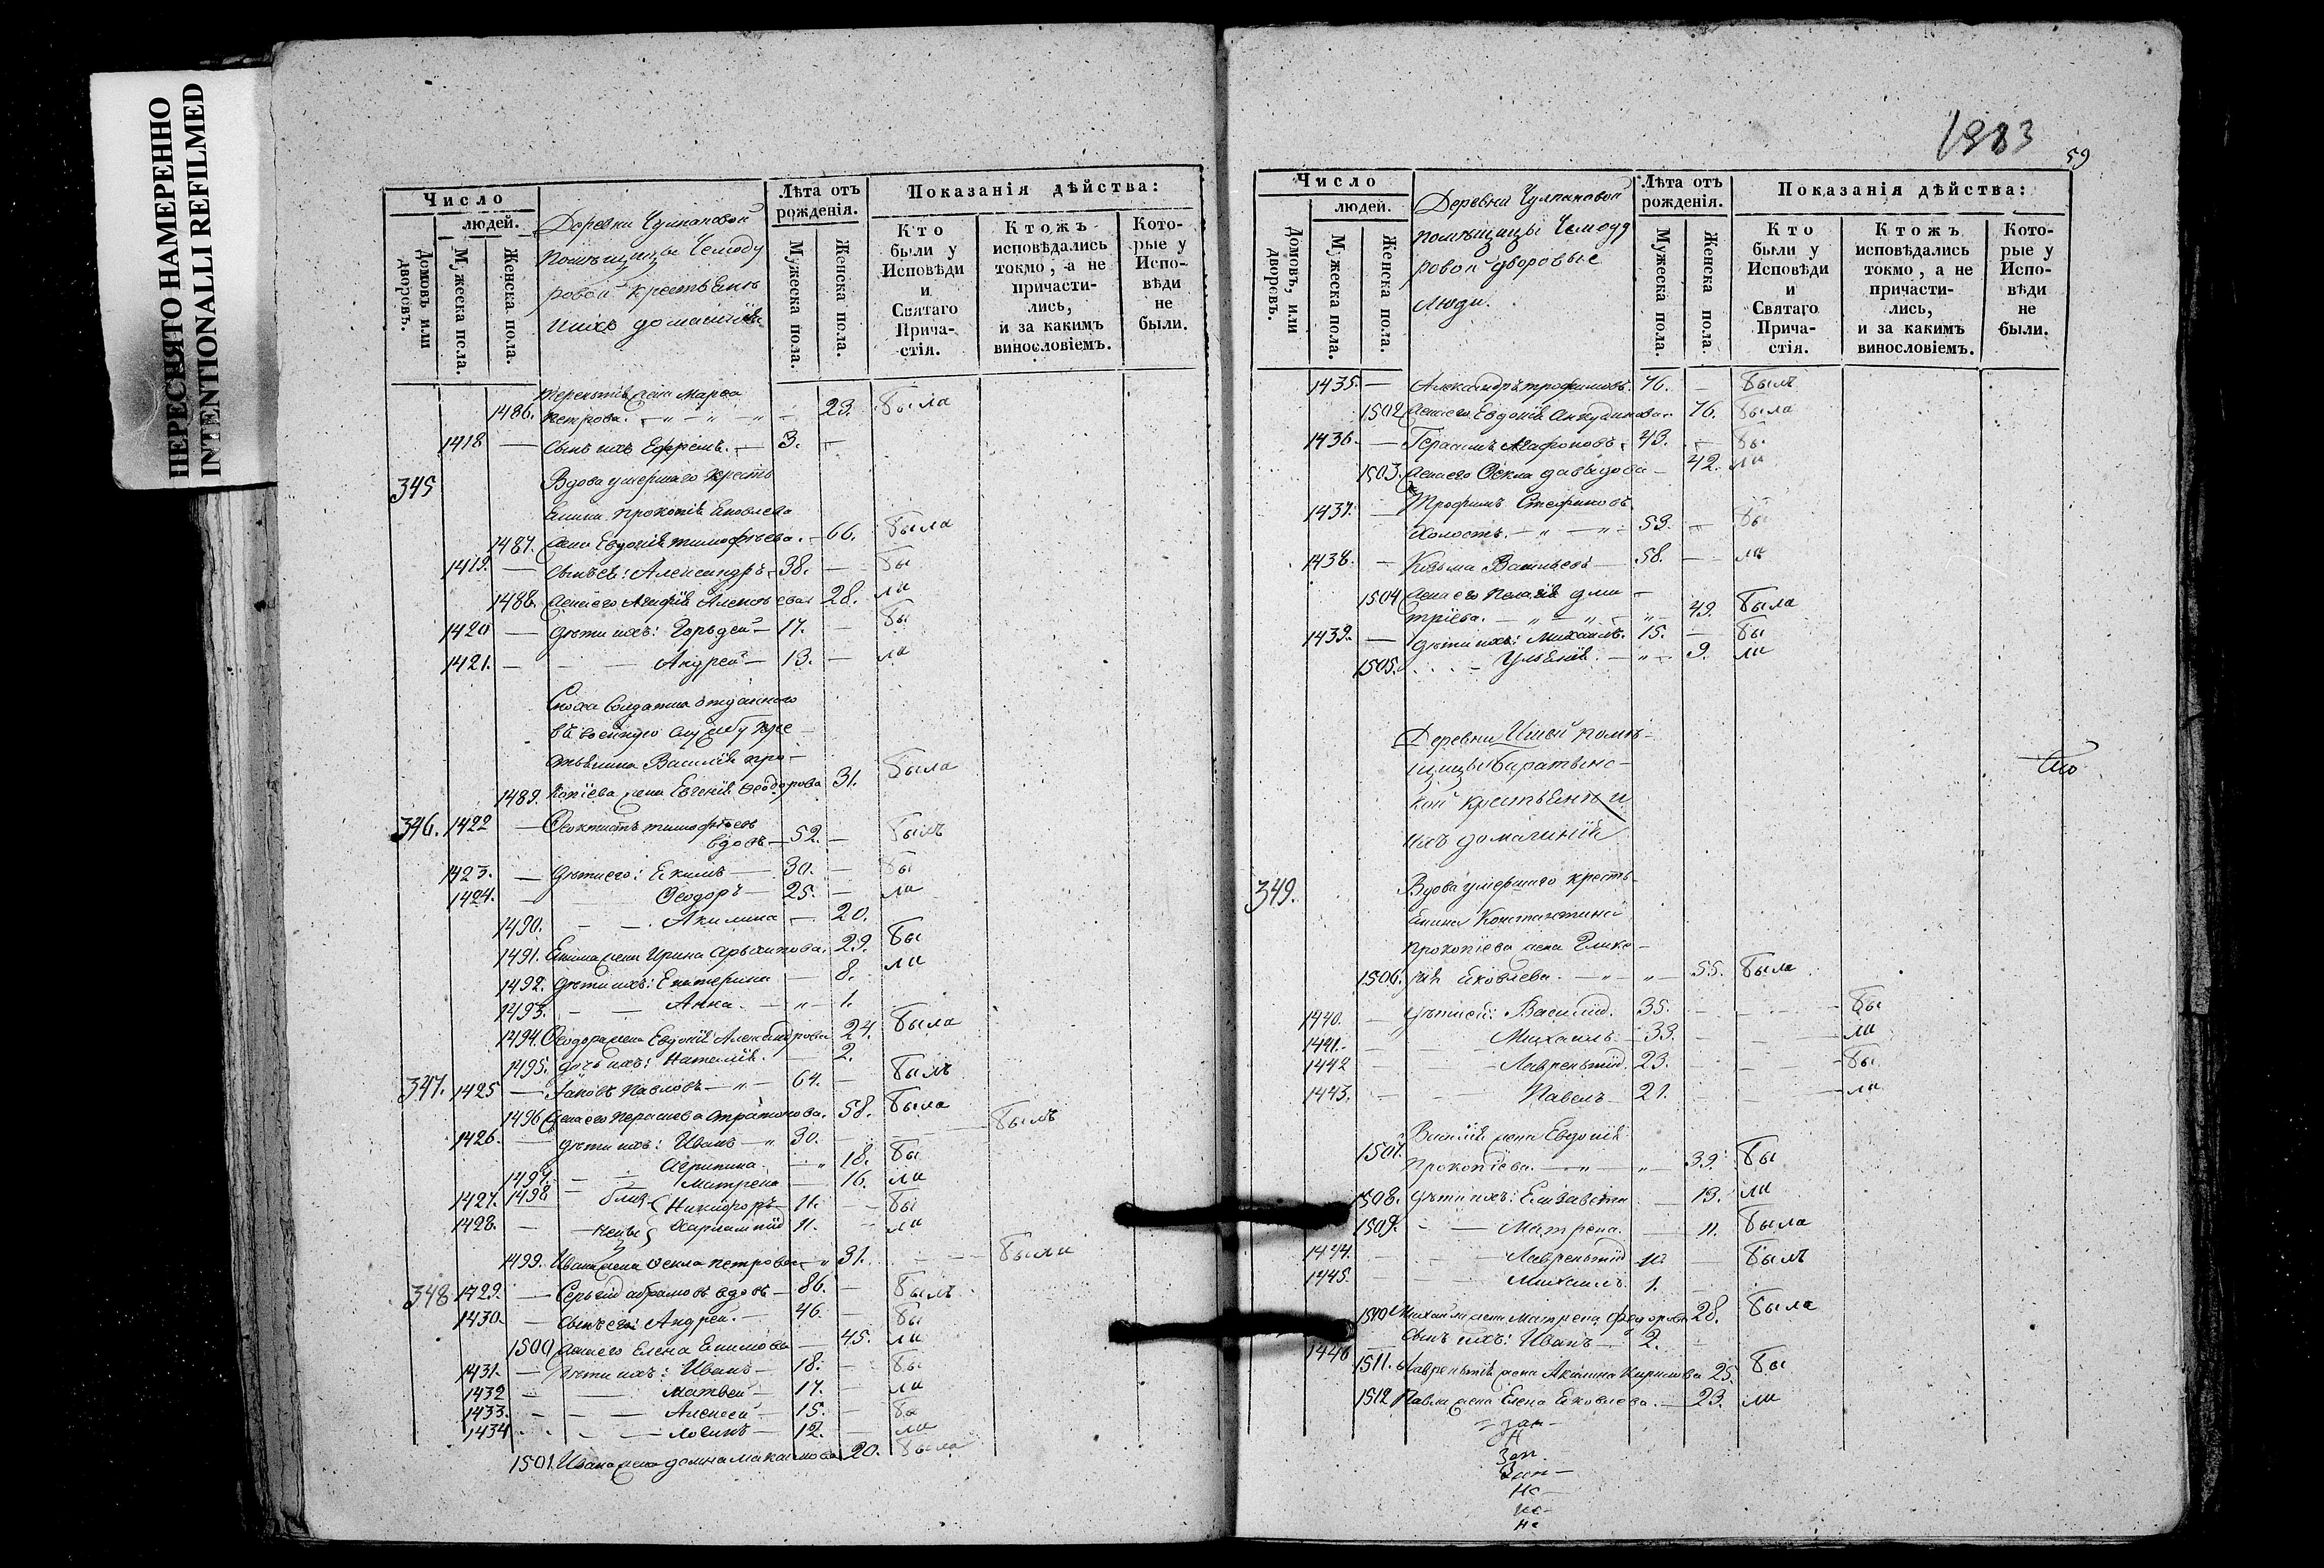 ПЕРЕСНЯТО НАМЕРЕННО
INTENTIONALLI REFILMED
Число
людей.
Домовъ или дворовъ.
Мужеска пола.
Женска пола.
Деревни Чулпановой
помѣщицы Чемоду
ровой крестьяне
и ихъ домашнія
Лѣта отъ рожденія.
Мужеска пола.
Женска пола.
Показанія дѣйства:
Кто были у Исповѣди и Святаго Прича-стія.
Ктожъ исповѣдались токмо, а не причасти-лись, и за какимъ винословіемъ.
Кото-рые у Испо-вѣди не были.
Терентія жена Марѳа
1486. Петрова. 23. Была
1418 — Сынъ ихъ Ефремъ. — 3. —
345 Вдова умершаго кресть
янина Прокопія Яковлева
1487. жена Евдокія Тимофѣева. — 66. Была
1419. — Сынъ ея: Александръ — 38. — Бы
1488. жена его Агафія Алексѣева 28. ли
1420 — дѣти ихъ: Гордѣй — 17. — Бы
1421. — Андрей — 13. — ли
Сноха солдатка отданнаго
въ военную службу кре
стьянина Василія Про-
1489. копіева жена Евгенія Ѳеодорова 31. Была
346. 1422 — Ѳеоктистъ Тимофѣевъ
вдовъ — 52. — Былъ
1423. — дѣти его: Екимъ — 30. — Бы
1424. — Ѳеодоръ — 25. — ли
1490. — Акилина — 20.
1491. Екима жена Ирина Архипова. 29. Бы
1492. дѣти ихъ: Екатерина — 8. ли
1493. — Анна. — 1.
1494. Ѳеодора жена Евдокія Александрова 24. Была
1495. дочь ихъ: Наталія. — 2.
347. 1425 — Іаковъ Павловъ — 64. — Былъ
1496 жена его Параскева Стратонова. 58. Была
1426. — дѣти ихъ: Иванъ — 30. — Былъ
1497. — Агрипина — 18. Бы
1498 — Матрена — 16. ли
1427. близ- Никифоръ — 11. — Бы
1428. — нецы Харлампій 11. — ли
1499. Ивана жена Ѳекла Петрова — 31. — Была
348 1429. — Сергій Абрамовъ вдовъ — 86. — Былъ
1430. — Сынъ его: Андрей. — 46. — Бы
1500 жена его Елена Екимова — 45. ли
1431. — дѣти ихъ: Иванъ — 18. — Бы
1432 — Матвей — 17. — ли
1433. — Алексей — 15. — Бы
1434 — Логинъ — 12. — ли
1501. Ивана жена Домна Максимова 20. Была
1983
59
Число
людей.
Домовъ, или дворовъ.
Мужеска пола.
Женска пола.
Деревни Чулпановой
помѣщицы Чемоду
ровой дворовые
люди.
Лѣта отъ рожденія.
Мужеска пола.
Женска пола.
Показанія дѣйства:
Кто были у Исповѣди и Святаго Прича-стія.
Ктожъ исповѣдались токмо, а не причасти-лись, и за какимъ винословіемъ.
Кото-рые у Испо-вѣди не были.
1435. — Александръ Трофимовъ. 76. — Былъ
1502 жена его Евдокія Анкудинова. 76. Была
1436. — Герасимъ Агафоновъ. 43. — Бы
1503. жена его Ѳекла Давыдова — 42. ли
1437. — Трофимъ Стефановъ
холостъ. — 53. — Бы
1438. — Козьма Васильевъ — 58. — ли
1504 жена его Пелагія Дми —
тріева. — 49. Была
1439. — дѣти ихъ: Михаилъ. 15. — Бы
1505. — Ульянія. — 9. ли
Деревни помѣ-
щицы Баратынс-
кой крестьяне и
ихъ домашнія
349. Вдова умершаго кресть-
янина Константина
Прокопіева жена Глике-
1506. рія Яковлева. — 55. Была
1440. — дѣти ея: Василій. 35. — Бы
1441. — Михаилъ — 33. — ли
1442 — Лаврентій. 23. — Бы
1443. — Павелъ — 21. — ли
Василія жена Евдокія
1507. Прокопіева. — 39. Бы
1508. дѣти ихъ: Елизавета — 13. ли
1509. — Матрена. 11. Была
1444. — Лаврентій — Былъ
1445. — Михаилъ. 1. —
1510 Михаила жена Матрена Федорова 28. Была
1446 Сынъ ихъ: Иванъ — 2. —
1511. Лаврентія жена Акилина Кирилова 25. Бы
1512 Павла жена Елена Яковлева. — 23. ли